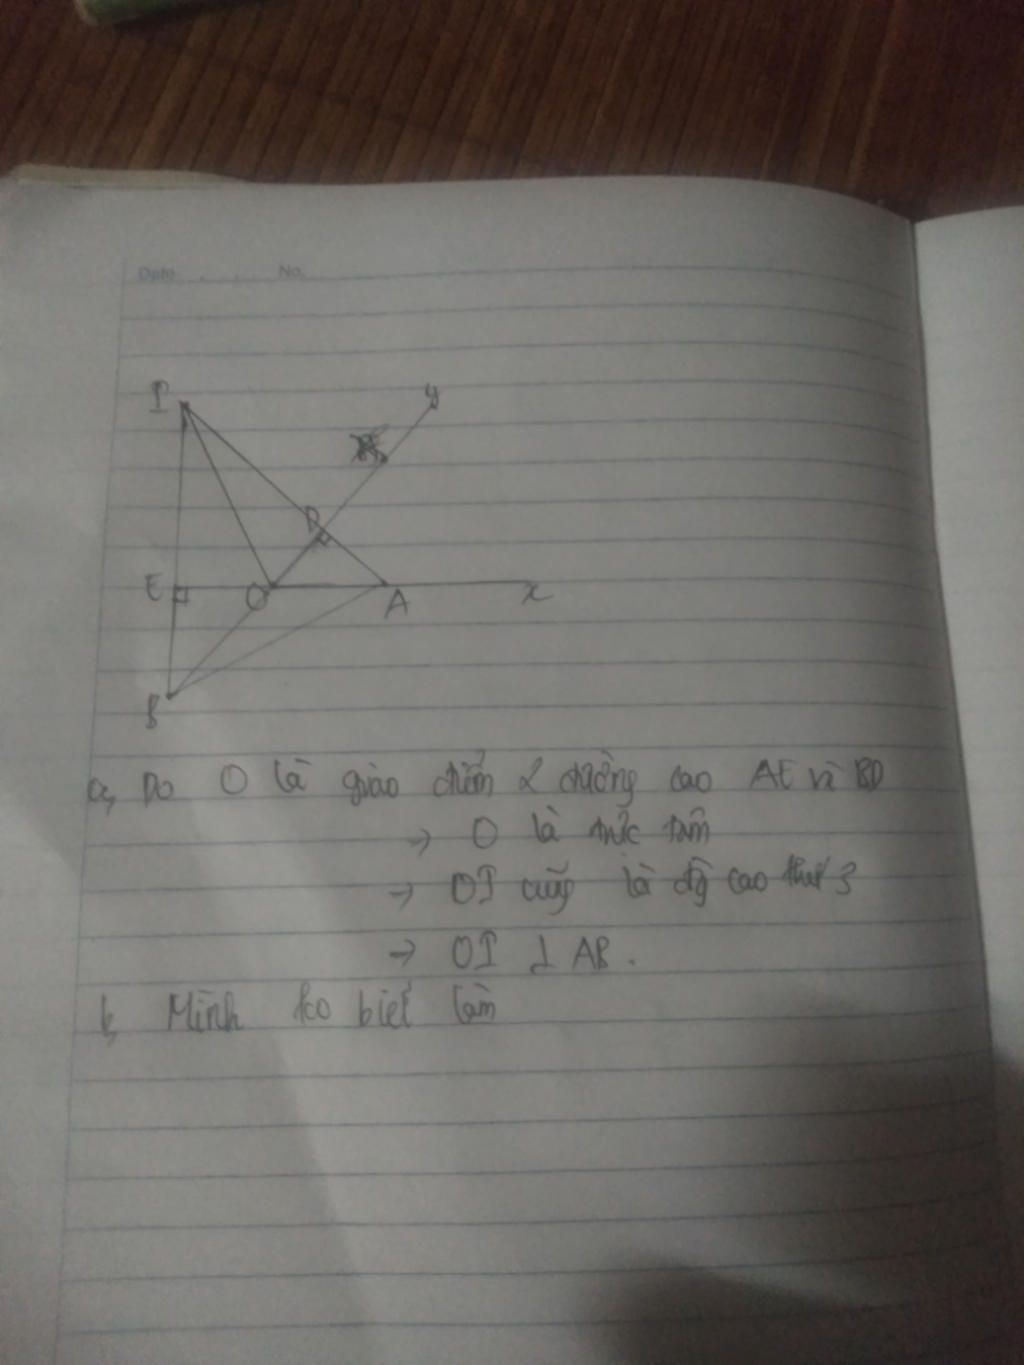 Date No.
I
y
D
E
O
A
x
B
a, Do O là giao điểm 2 đường cao AE và BD
→ O là trực tâm
→ OI cũng là đg cao thứ 3
→ OI ⊥ AB.
b, Mình ko biết làm